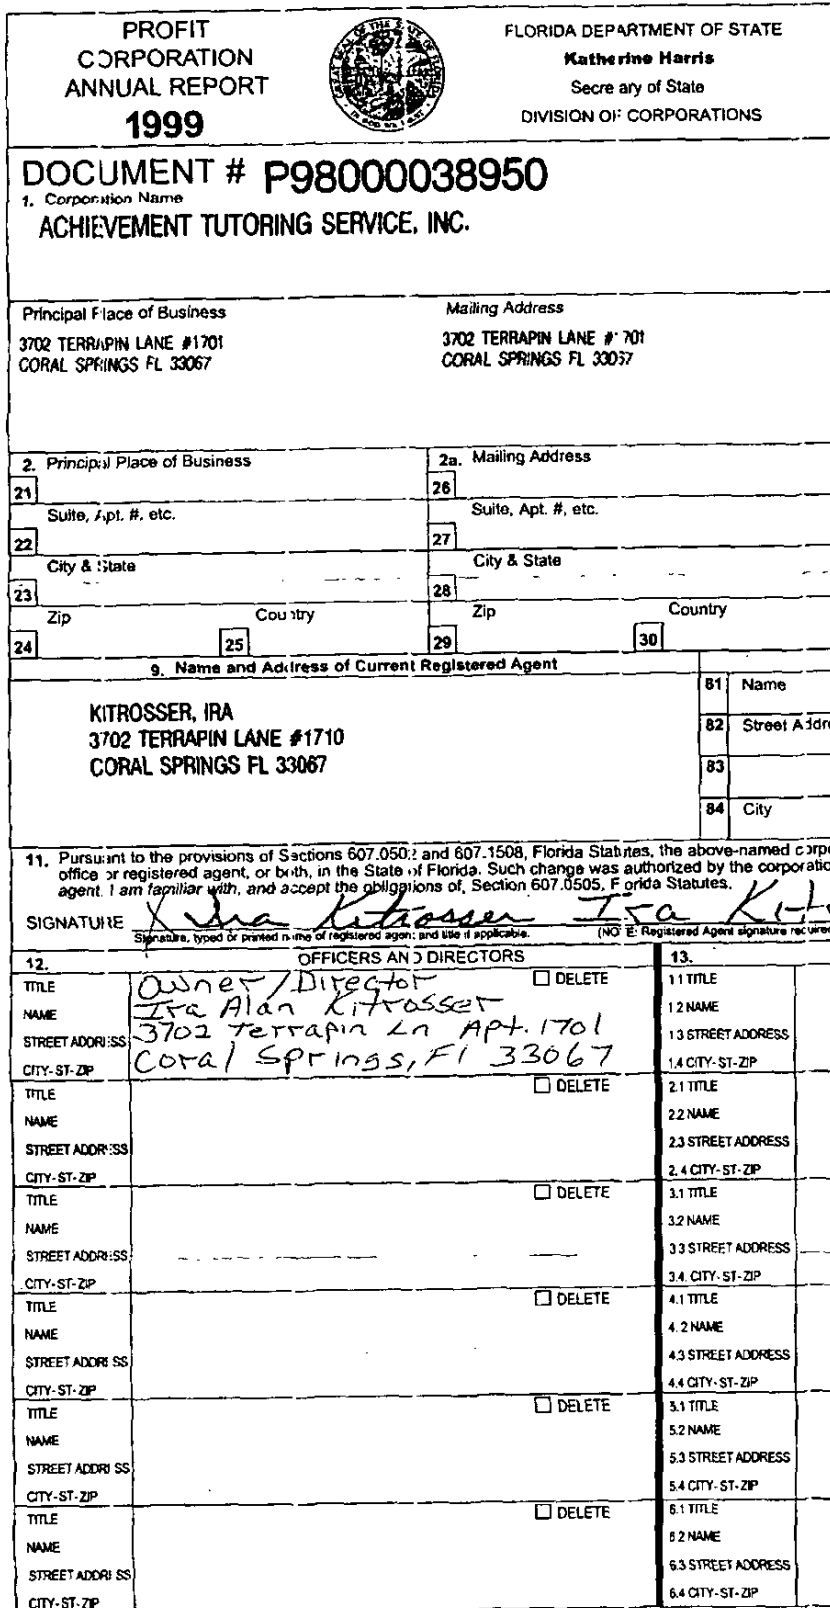 PROFIT
CORPORATION
ANNUAL REPORT
1999
FLORIDA DEPARTMENT OF STATE
Katherine Harris
Secre ary of State
DIVISION OF CORPORATIONS
DOCUMENT # P98000038950
1. Corporation Name
ACHIEVEMENT TUTORING SERVICE, INC.
Principal Place of Business
3702 TERRAPIN LANE #1701
CORAL SPRINGS FL 33067
Mailing Address
3702 TERRAPIN LANE #1701
CORAL SPRINGS FL 33067
2. Principal Place of Business
21
Suite, Apt. #, etc.
22
City & State
23
Zip
24
Country
25
2a. Mailing Address
26
Suite, Apt. #, etc.
27
City & State
28
Zip
29
Country
30
9. Name and Address of Current Registered Agent
KITROSSER, IRA
3702 TERRAPIN LANE #1710
CORAL SPRINGS FL 33067
81 Name
82 Street Addre
83
84 City
11. Pursuant to the provisions of Sections 607.0502 and 607.1508, Florida Statutes, the above-named corpo
office or registered agent, or both, in the State of Florida. Such change was authorized by the corporatio
agent. I am familiar with, and accept the obligations of, Section 607.0505, Florida Statutes.
SIGNATURE X Ira Kitrosser Ira Kit
Signature, typed or printed name of registered agent and title if applicable. (NOTE: Registered Agent signature required
12. OFFICERS AND DIRECTORS
TITLE Owner/Director DELETE
NAME Ira Alan Kitrosser
STREET ADDRESS 3702 Terrapin Ln Apt. 1701
CITY-ST-ZIP Coral Springs, Fl 33067
TITLE DELETE
NAME
STREET ADDRESS
CITY-ST-ZIP
TITLE DELETE
NAME
STREET ADDRESS
CITY-ST-ZIP
TITLE DELETE
NAME
STREET ADDRESS
CITY-ST-ZIP
TITLE DELETE
NAME
STREET ADDRESS
CITY-ST-ZIP
TITLE DELETE
NAME
STREET ADDRESS
CITY-ST-ZIP
13.
1.1 TITLE
1.2 NAME
1.3 STREET ADDRESS
1.4 CITY-ST-ZIP
2.1 TITLE
2.2 NAME
2.3 STREET ADDRESS
2.4 CITY-ST-ZIP
3.1 TITLE
3.2 NAME
3.3 STREET ADDRESS
3.4. CITY-ST-ZIP
4.1 TITLE
4.2 NAME
4.3 STREET ADDRESS
4.4 CITY-ST-ZIP
5.1 TITLE
5.2 NAME
5.3 STREET ADDRESS
5.4 CITY-ST-ZIP
6.1 TITLE
6.2 NAME
6.3 STREET ADDRESS
6.4 CITY-ST-ZIP